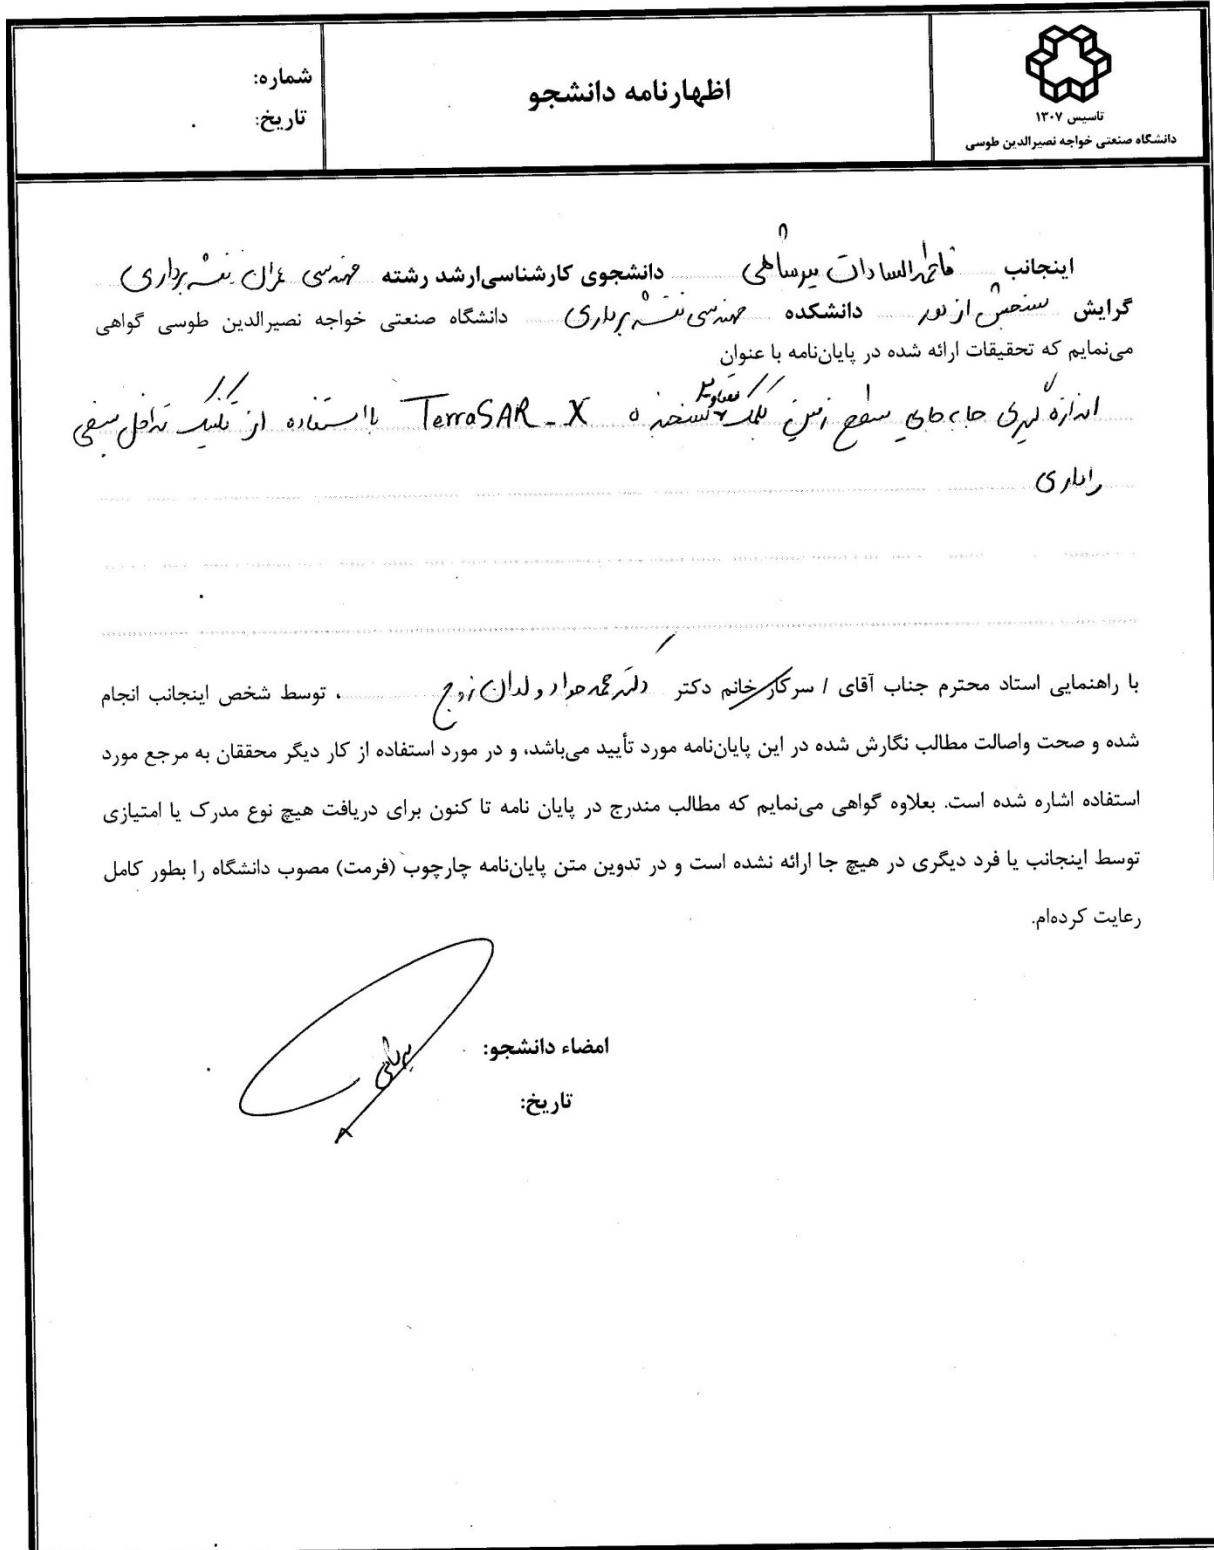 تاسیس ۱۳۰۷
دانشگاه صنعتی خواجه نصیرالدین طوسی
اظهارنامه دانشجو
شماره:
تاریخ:
اینجانب فاطمه السادات میرشاهی دانشجوی کارشناسی‌ارشد رشته مهندسی عمران نقشه برداری
گرایش سنجش از دور دانشکده مهندسی نقشه برداری دانشگاه صنعتی خواجه نصیرالدین طوسی گواهی
می‌نمایم که تحقیقات ارائه شده در پایان‌نامه با عنوان
اندازه گیری جابجایی سطح زمین به کمک تصاویر سنجنده TerraSAR-X با استفاده از تکنیک تداخل سنجی
راداری
با راهنمایی استاد محترم جناب آقای / سرکار خانم دکتر دکتر محمد جواد ولدان زوج ، توسط شخص اینجانب انجام
شده و صحت واصالت مطالب نگارش شده در این پایان‌نامه مورد تأیید می‌باشد، و در مورد استفاده از کار دیگر محققان به مرجع مورد
استفاده اشاره شده است. بعلاوه گواهی می‌نمایم که مطالب مندرج در پایان نامه تا کنون برای دریافت هیچ نوع مدرک یا امتیازی
توسط اینجانب یا فرد دیگری در هیچ جا ارائه نشده است و در تدوین متن پایان‌نامه چارچوب (فرمت) مصوب دانشگاه را بطور کامل
رعایت کرده‌ام.
امضاء دانشجو:
تاریخ: